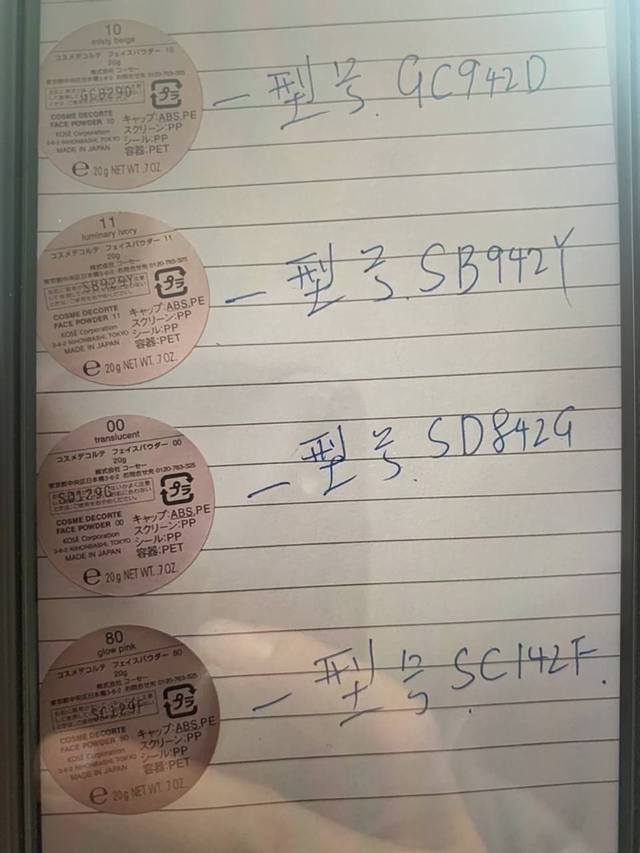 10
misty beige
コスメデコルテ フェイスパウダー 10
20g
株式会社 コーセー
東京都中央区日本橋3-6-2 お問合せ先 0120-763-325
GCB29D
プラ
COSME DECORTE
FACE POWDER 10
KOSÉ Corporation
3-6-2 NIHONBASHI, TOKYO
MADE IN JAPAN
キャップ:ABS,PE
スクリーン:PP
シール:PP
容器:PET
e 20g NET WT. .7 OZ.
一型号 GC942D
11
luminary ivory
コスメデコルテ フェイスパウダー 11
20g
株式会社 コーセー
東京都中央区日本橋3-6-2 お問合せ先 0120-763-325
SB929Y
プラ
COSME DECORTE
FACE POWDER 11
KOSÉ Corporation
3-6-2 NIHONBASHI, TOKYO
MADE IN JAPAN
キャップ:ABS,PE
スクリーン:PP
シール:PP
容器:PET
e 20g NET WT. .7 OZ.
一型号 SB942Y
00
translucent
コスメデコルテ フェイスパウダー 00
20g
株式会社 コーセー
東京都中央区日本橋3-6-2 お問合せ先 0120-763-325
SD129G
プラ
COSME DECORTE
FACE POWDER 00
KOSÉ Corporation
3-6-2 NIHONBASHI, TOKYO
MADE IN JAPAN
キャップ:ABS,PE
スクリーン:PP
シール:PP
容器:PET
e 20g NET WT. .7 OZ.
一型号 SD842G
80
glow pink
コスメデコルテ フェイスパウダー 80
20g
株式会社 コーセー
東京都中央区日本橋3-6-2 お問合せ先 0120-763-325
SC129F
プラ
COSME DECORTE
FACE POWDER 80
KOSÉ Corporation
3-6-2 NIHONBASHI, TOKYO
MADE IN JAPAN
キャップ:ABS,PE
スクリーン:PP
シール:PP
容器:PET
e 20g NET WT. .7 OZ.
一型号 SC142F.